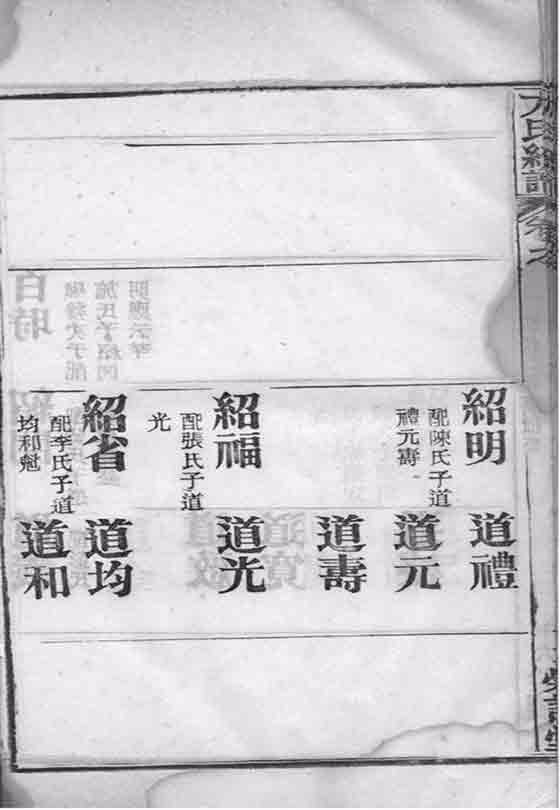 氏
譜
卷之
紹明
配陳氏子道
禮元壽
道禮
道元
道壽
紹福
配張氏子道
光
道光
紹省
配李氏子道
均和魁
道均
道和